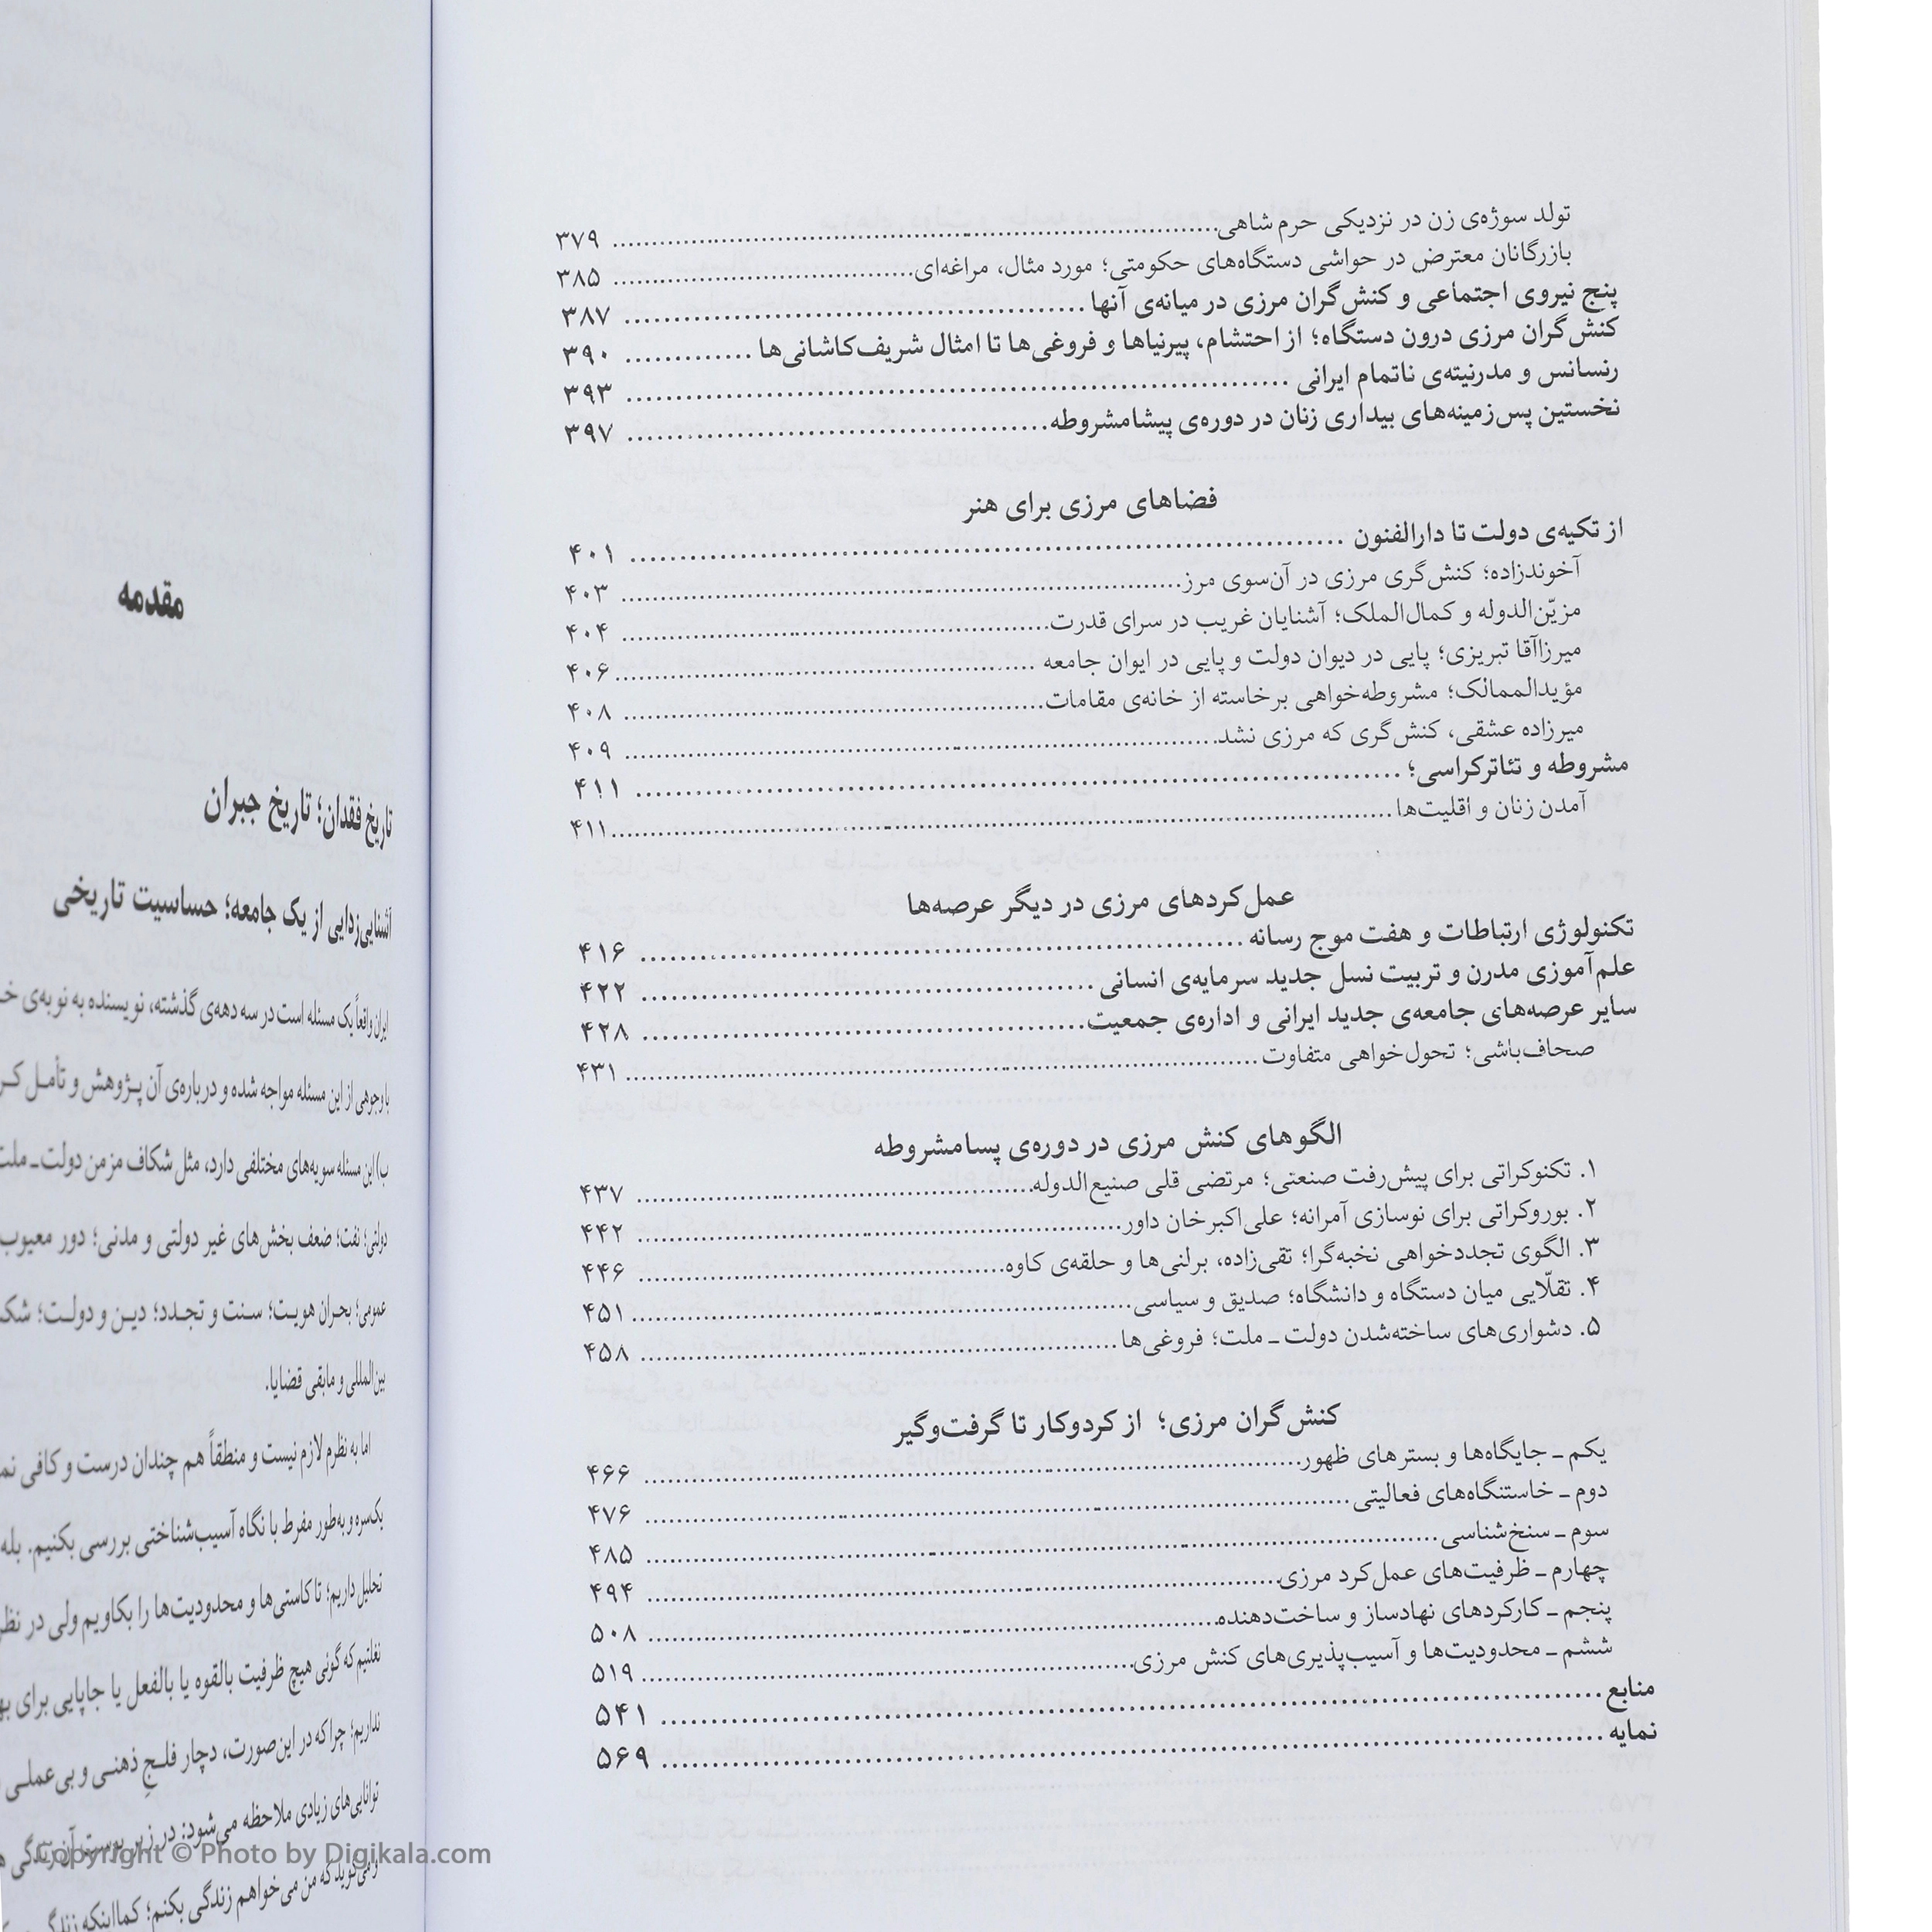 تولد سوژه‌ی زن در نزدیکی حرم شاهی ۳۷۹
بازرگانان معترض در حواشی دستگاه‌های حکومتی؛ مورد مثال، مراغه‌ای ۳۸۵
پنج نیروی اجتماعی و کنش‌گران مرزی در میانه‌ی آنها ۳۸۷
کنش‌گران مرزی درون دستگاه؛ از احتشام، پیرنیاها و فروغی‌ها تا امثال شریف‌کاشانی‌ها ۳۹۰
رنسانس و مدرنیته‌ی ناتمام ایرانی ۳۹۳
نخستین پس‌زمینه‌های بیداری زنان در دوره‌ی پیشامشروطه ۳۹۷
فضاهای مرزی برای هنر
از تکیه‌ی دولت تا دارالفنون ۴۰۱
آخوندزاده؛ کنش‌گری مرزی در آن‌سوی مرز ۴۰۳
مزیّن‌الدوله و کمال‌الملک؛ آشنایان غریب در سرای قدرت ۴۰۴
میرزاآقا تبریزی؛ پایی در دیوان دولت و پایی در ایوان جامعه ۴۰۶
مؤیدالممالک؛ مشروطه‌خواهی برخاسته از خانه‌ی مقامات ۴۰۸
میرزاده عشقی، کنش‌گری که مرزی نشد ۴۰۹
مشروطه و تئاترکراسی؛ ۴۱۱
آمدن زنان و اقلیت‌ها ۴۱۱
عمل‌کردهای مرزی در دیگر عرصه‌ها
تکنولوژی ارتباطات و هفت موج رسانه ۴۱۶
علم‌آموزی مدرن و تربیت نسل جدید سرمایه‌ی انسانی ۴۲۲
سایر عرصه‌های جامعه‌ی جدید ایرانی و اداره‌ی جمعیت ۴۲۸
صحاف‌باشی؛ تحول‌خواهی متفاوت ۴۳۱
الگوهای کنش مرزی در دوره‌ی پسامشروطه
۱. تکنوکراتی برای پیش‌رفت صنعتی؛ مرتضی قلی صنیع‌الدوله ۴۳۷
۲. بوروکراتی برای نوسازی آمرانه؛ علی‌اکبرخان داور ۴۴۲
۳. الگوی تجددخواهی نخبه‌گرا؛ تقی‌زاده، برلنی‌ها و حلقه‌ی کاوه ۴۴۶
۴. تقلّایی میان دستگاه و دانشگاه؛ صدیق و سیاسی ۴۵۱
۵. دشواری‌های ساخته‌شدن دولت ـ ملت؛ فروغی‌ها ۴۵۸
کنش‌گران مرزی؛ از کردوکار تا گرفت‌وگیر
یکم ـ جایگاه‌ها و بسترهای ظهور ۴۶۶
دوم ـ خاستنگاه‌های فعالیتی ۴۷۶
سوم ـ سنخ‌شناسی ۴۸۵
چهارم ـ ظرفیت‌های عمل‌کرد مرزی ۴۹۴
پنجم ـ کارکردهای نهادساز و ساخت‌دهنده ۵۰۸
ششم ـ محدودیت‌ها و آسیب‌پذیری‌های کنش مرزی ۵۱۹
منابع ۵۴۱
نمایه ۵۶۹
مقدمه
تاریخ فقدان؛ تاریخ جبران
آشنایی‌زدایی از یک جامعه؛ حساسیت تاریخی
ایران واقعاً یک مسئله است در سه دهه‌ی گذشته، نویسنده به نوبه‌ی
با وجوهی از این مسئله مواجه شده و درباره‌ی آن پژوهش و تأمل
این مسئله سویه‌های مختلفی دارد، مثل شکاف مزمن دولت ـ ملت
دولتی؛ نفت؛ ضعف بخش‌های غیر دولتی و مدنی؛ دور معیوب
عمومی؛ بحران هویت؛ سنت و تجدد؛ دین و دولت؛
بین‌المللی و مابقی قضایا.
اما به نظرم لازم نیست و منطقاً هم چندان درست و کافی
یک‌سره و به‌طور مفرط با نگاه آسیب‌شناختی بررسی بکنیم. بله
تحلیل داریم؛ تا کاستی‌ها و محدودیت‌ها را بکاویم ولی در نظر
نغلتیم که گونی هیچ ظرفیت بالقوه یا بالفعل یا جاپایی برای
نداریم؛ چرا که در این‌صورت، دچار فلجِ ذهنی و بی‌عملی
توانایی‌های زیادی ملاحظه می‌شود: در زیر پوست آن زندگی
و می‌گوید که من می‌خواهم زندگی بکنم؛ کمااینکه
Copyright © Photo by Digikala.com